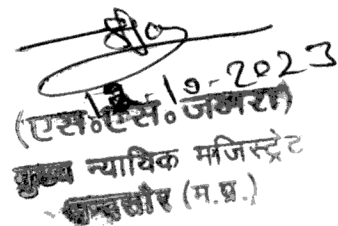 12-10-2023
(एस०एस० जमरा)
मुख्य न्यायिक मजिस्ट्रेट
मन्दसौर (म.प्र.)